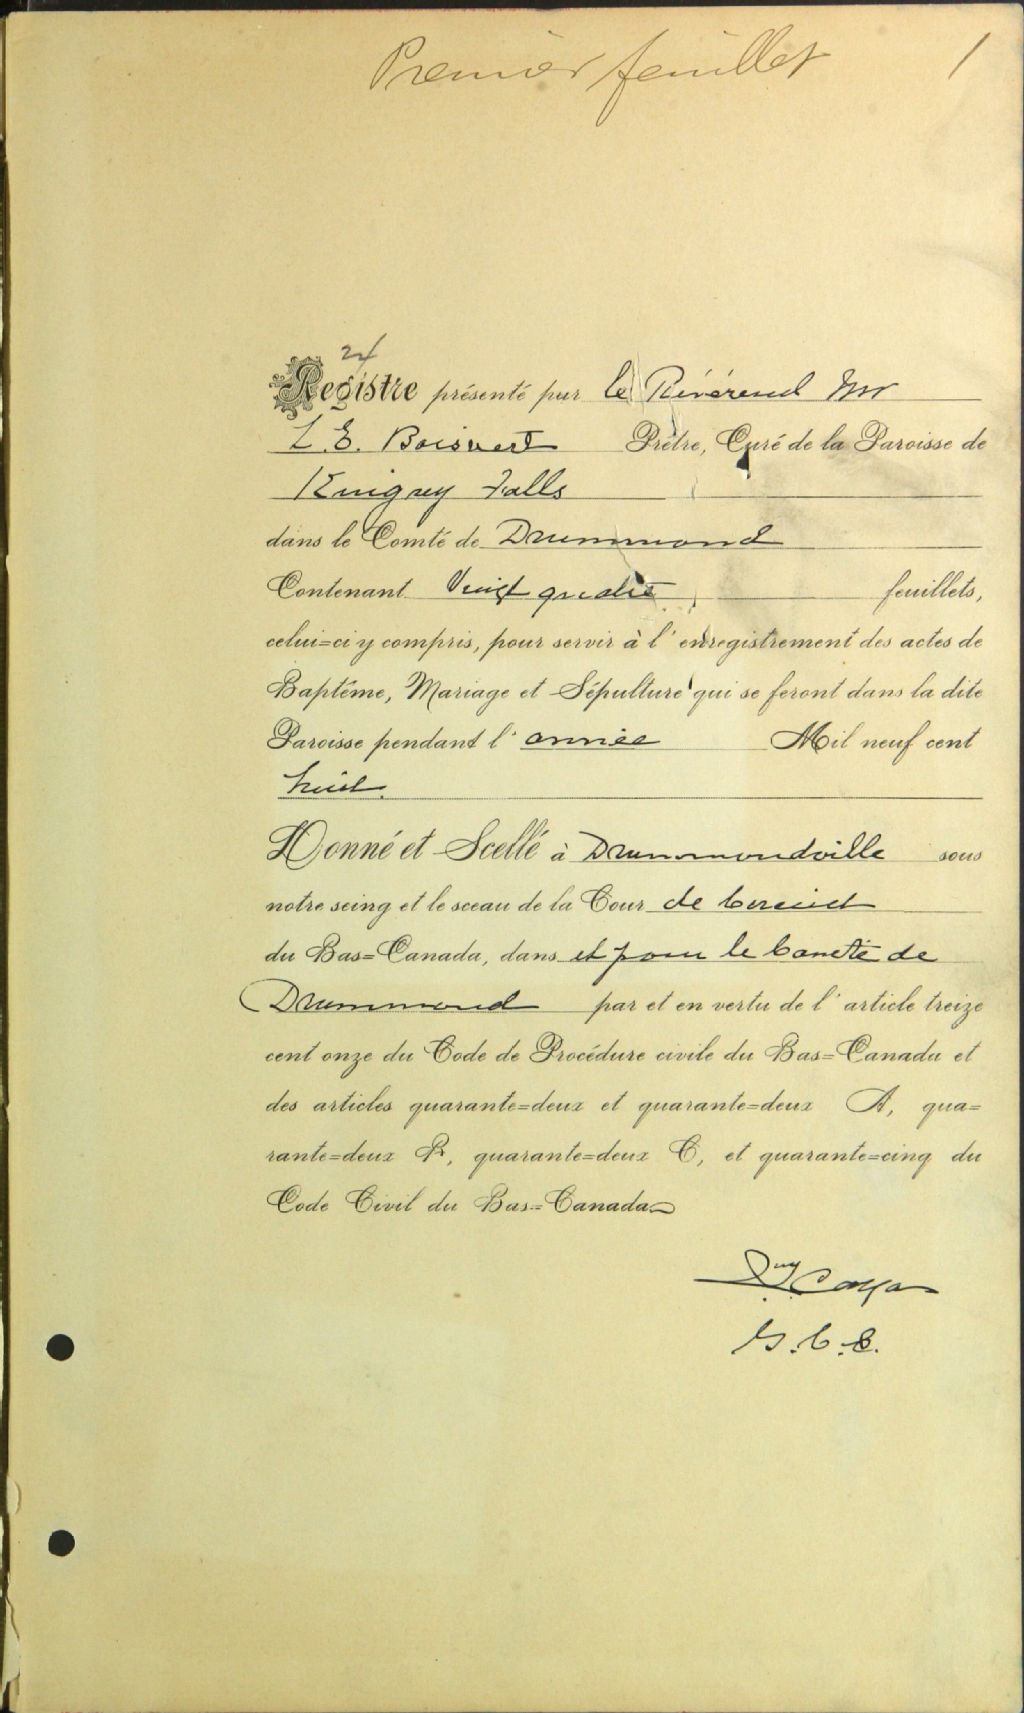 Premier feuillet 1
24
Registre présenté par le Révérend Mr
L. E. Boisvert Prêtre, Curé de la Paroisse de
Kingsey Falls
dans le Comté de Drummond
Contenant Vingt quatre feuillets,
celui=ci y compris, pour servir à l'enregistrement des actes de
Baptême, Mariage et Sépulture qui se feront dans la dite
Paroisse pendant l'année Mil neuf cent
huit.
Donné et Scellé à Drummondville sous
notre seing et le sceau de la Cour de Circuit
du Bas=Canada, dans et pour le Comté de
Drummond par et en vertu de l'article treize
cent onze du Code de Procédure civile du Bas=Canada et
des articles quarante=deux et quarante=deux A, qua=
rante=deux B, quarante=deux C, et quarante=cinq du
Code Civil du Bas=Canada
G. C. C.